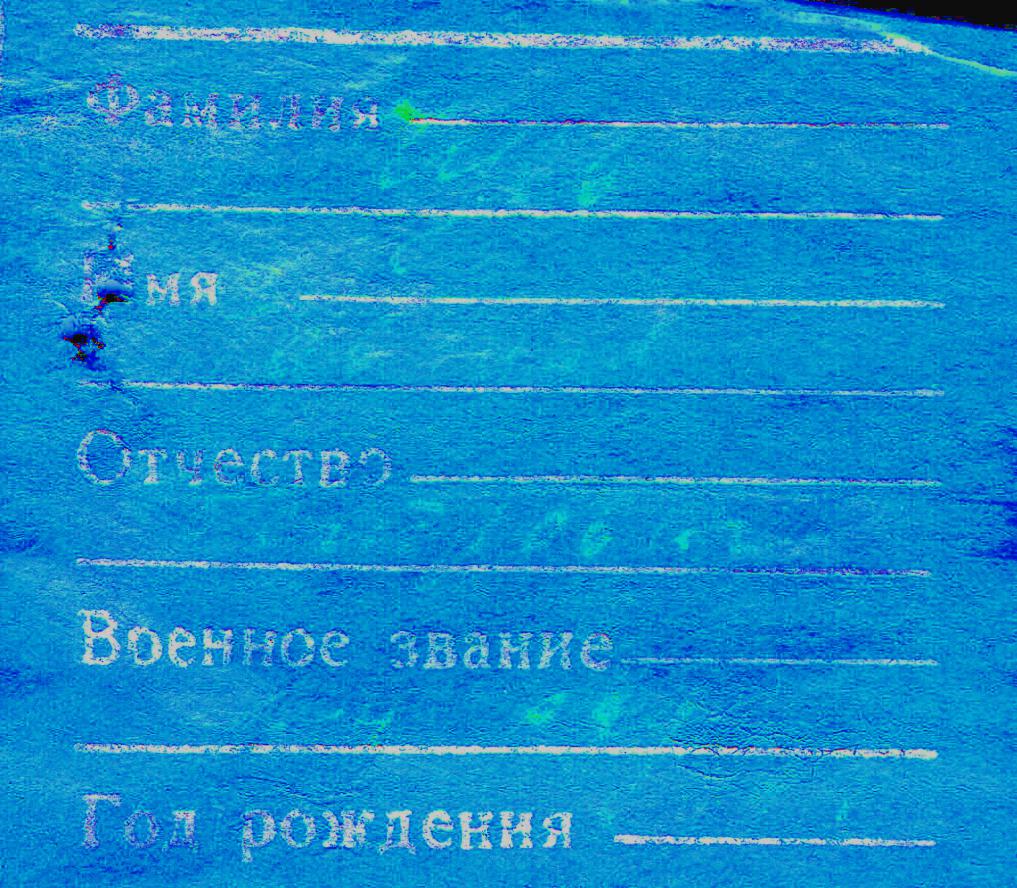 Фамилия
Имя
Отчество
Военное звание
Год рождения